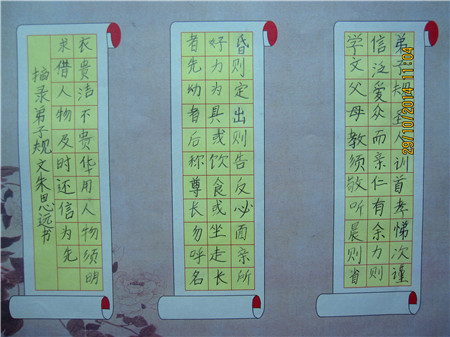 弟子规圣人训首孝悌次谨
信泛爱众而亲仁有余力则
学文父母教须敬听晨则省
昏则定出则告反必面亲所
好力为具或饮食或坐走长
者先幼者后称尊长勿呼名
衣贵洁不贵华用人物须明
求借人物及时还信为先
摘录弟子规文朱思远书
29/10/2014 11:04